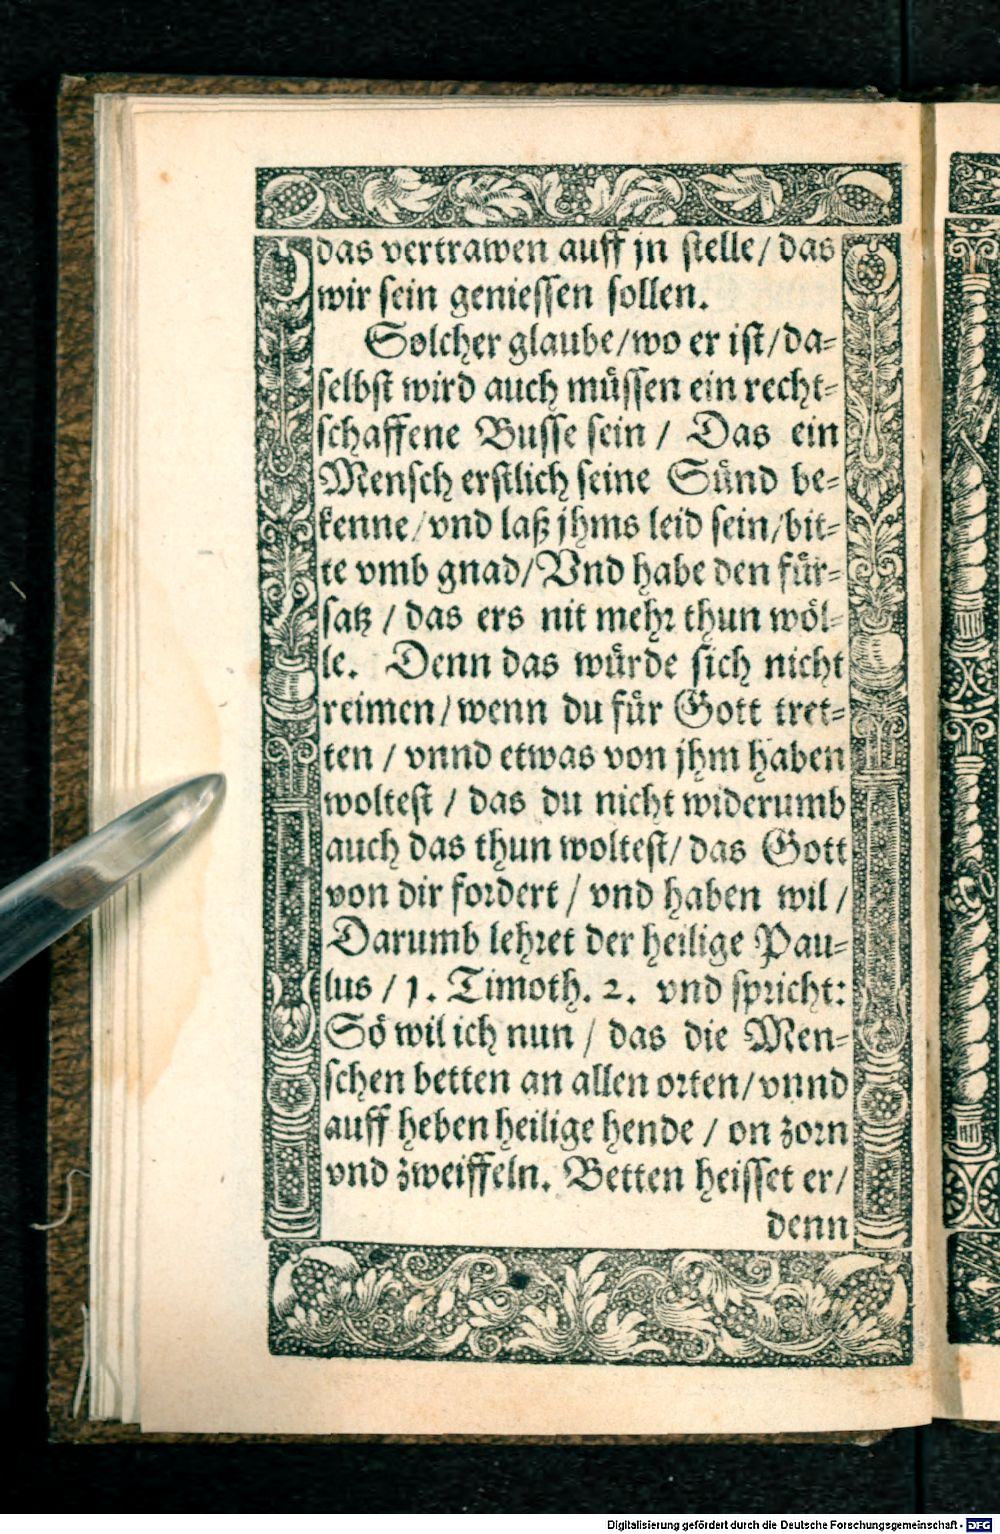 das vertrawen auff jn stelle/ das
wir sein geniessen sollen.
Solcher glaube/wo er ist/da-
selbst wird auch müssen ein recht-
schaffene Busse sein / Das ein
Mensch erstlich seine Sünd be-
kenne/vnd laß jhms leid sein/bit-
te vmb gnad/Vnd habe den für-
satz / das ers nit mehr thun wöl-
le. Denn das würde sich nicht
reimen/wenn du für Gott tret-
ten / vnnd etwas von jhm haben
woltest / das du nicht widerumb
auch das thun woltest/ das Gott
von dir fordert / vnd haben wil /
Darumb lehret der heilige Pau-
lus / 1. Timoth. 2. vnd spricht:
Sö wil ich nun / das die Men-
schen betten an allen orten/vnnd
auff heben heilige hende / on zorn
vnd zweiffeln. Betten heisset er/
denn
Digitalisierung gefördert durch die Deutsche Forschungsgemeinschaft - DFG